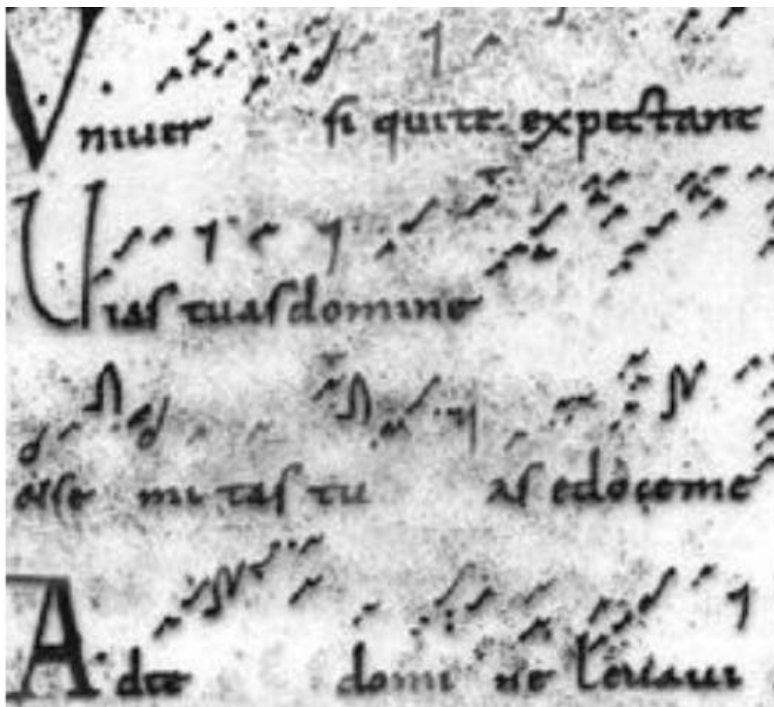 Vniuer si quite expectant
Uias tuas domine
etse mi tas tu as edoceme
Adte domi ne leuaui